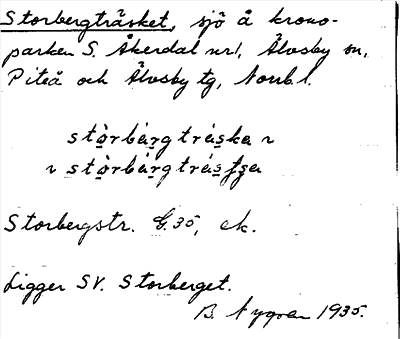 Storbergträsket, sjö å krono-
parken S. Åkerdal nr1, Älvsby sn,
Piteå och Älvsby tg, Norrb. l.
stòrbárgtráska ~
~ stòrbárgtrásʃʒa
Storbergstr. G.35, ek.
Ligger SV. Storberget.
B. Nygren 1935.